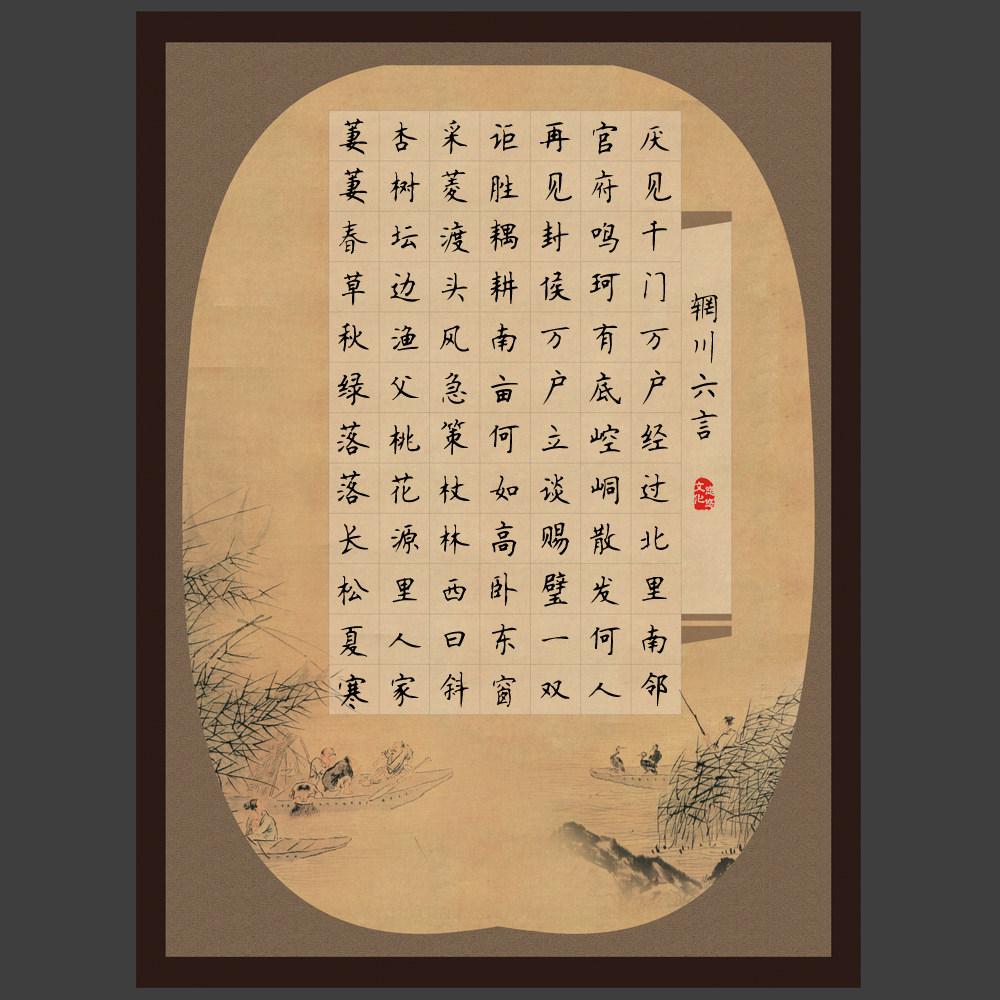 辋川六言
文化
厌见千门万户经过北里南邻
官府鸣珂有底崆峒散发何人
再见封侯万户立谈赐璧一双
讵胜耦耕南亩何如高卧东窗
采菱渡头风急策杖林西日斜
杏树坛边渔父桃花源里人家
萋萋春草秋绿落落长松夏寒